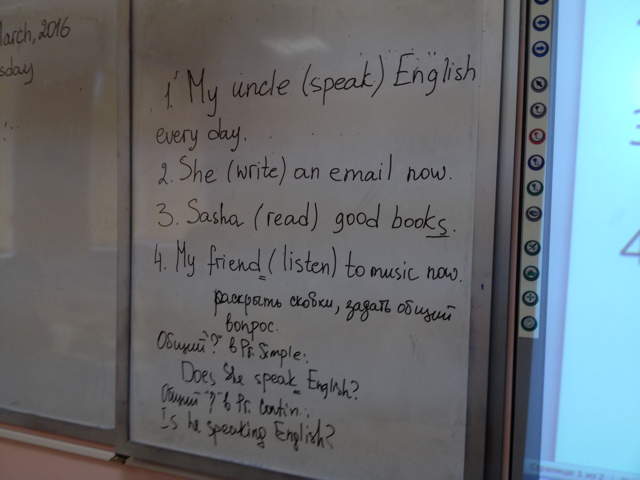 March, 2016
sday
1. My uncle (speak) English
every day.
2. She (write) an email now.
3. Sasha (read) good books.
4. My friend (listen) to music now.
раскрыть скобки, задать общий
вопрос.
Общий "?" в Pr. Simple:
Does She speak English?
Общий "?" в Pr. Contin.:
Is he speaking English?
3
4
Страница 1 из 2